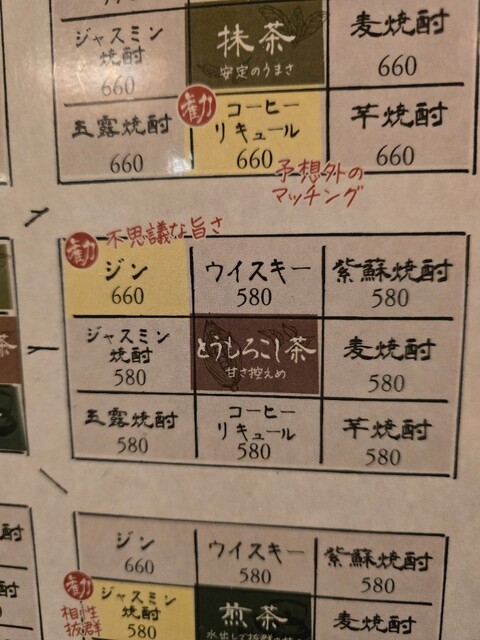 ジャスミン
焼酎
660
抹茶
安定のうまさ
麦焼酎
660
玉露焼酎
660
勧
コーヒー
リキュール
660
芋焼酎
660
予想外の
マッチング
勧
不思議な旨さ
ジン
660
ウイスキー
580
紫蘇焼酎
580
ジャスミン
焼酎
580
とうもろこし茶
甘さ控えめ
麦焼酎
580
玉露焼酎
580
コーヒー
リキュール
580
芋焼酎
580
茶
ジン
660
ウイスキー
580
紫蘇焼酎
580
勧
相性
抜群
ジャスミン
焼酎
580
煎茶
麦焼酎